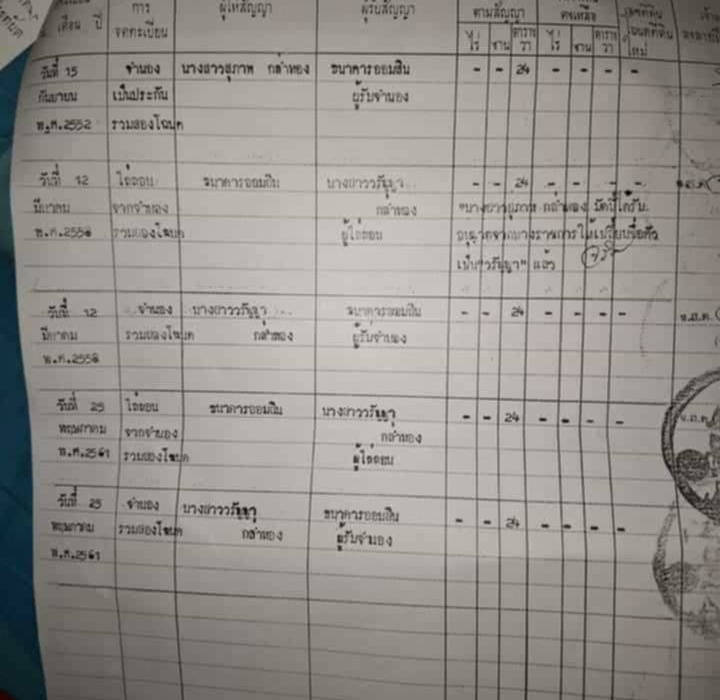 เดือน ปี การ จดทะเบียน ผู้ให้สัญญา ผู้รับสัญญา ตามสัญญา คงเหลือ
ไร่ งาน ตาราง วา ไร่ งาน ตาราง วา ใหม่
วันที่ 15 จำนอง นางสาวสุภาพ กล่ำทอง ธนาคารออมสิน - - 24 - - - -
กันยายน เป็นประกัน ผู้รับจำนอง
พ.ศ.2552 รวมสองโฉนด
วันที่ 12 ไถ่ถอน ธนาคารออมสิน นางสาววรัญญา - - 24 - - - -
มีนาคม จากจำนอง กล่ำทอง "นางสาวสุภาพ กล่ำทอง บัดนี้ได้รับ
พ.ศ.2558 รวมสองโฉนด ผู้ไถ่ถอน อนุญาตจากนางราชการให้เปลี่ยนชื่อตัว
เป็น"วรัญญา" แล้ว
วันที่ 12 จำนอง นางสาววรัญญา ธนาคารออมสิน - - 24 - - - -
มีนาคม รวมสองโฉนด กล่ำทอง ผู้รับจำนอง
พ.ศ.2558
วันที่ 25 ไถ่ถอน ธนาคารออมสิน นางสาววรัญญา - - 24 - - - -
พฤษภาคม จากจำนอง กล่ำทอง
พ.ศ.2561 รวมสองโฉนด ผู้ไถ่ถอน
วันที่ 25 จำนอง นางสาววรัญญา ธนาคารออมสิน - - 24 - - - -
พฤษภาคม รวมสองโฉนด กล่ำทอง ผู้รับจำนอง
พ.ศ.2561